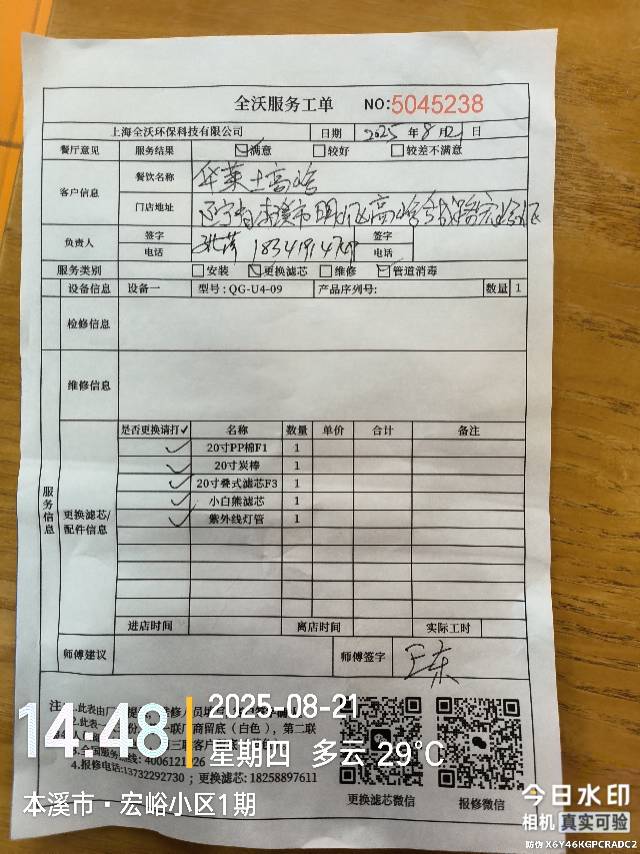 全沃服务工单 NO:5045238
上海全沃环保科技有限公司 日期 2025 年 8 月21 日
餐厅意见 服务结果 满意 较好 较差不满意
客户信息 餐饮名称 华莱士高峪
门店地址 辽宁省本溪市明山区高峪
负责人 签字 签字
电话 电话
服务类别 安装 更换滤芯 维修 管道消毒
设备信息 设备一 型号:QG-U4-09 产品序列号: 数量 1
检修信息
维修信息
服务信息
更换滤芯/配件信息
是否更换请打✓ 名称 数量 单价 合计 备注
✓ 20寸PP棉F1 1
✓ 20寸炭棒 1
✓ 20寸叠式滤芯F3 1
✓ 小白熊滤芯 1
✓ 紫外线灯管 1
进店时间 离店时间 实际工时
师傅建议 师傅签字 王东
注:1.此表由厂
联厂商留底(白色),第二联
3.全国服务热线:4006121
4.报修电话:13732292730;更换滤芯:18258897611
更换滤芯微信 报修微信
14:48
2025-08-21
星期四 多云 29°C
本溪市·宏峪小区1期
今日水印
相机 真实可验
防伪 X6Y46KGPCRADC2